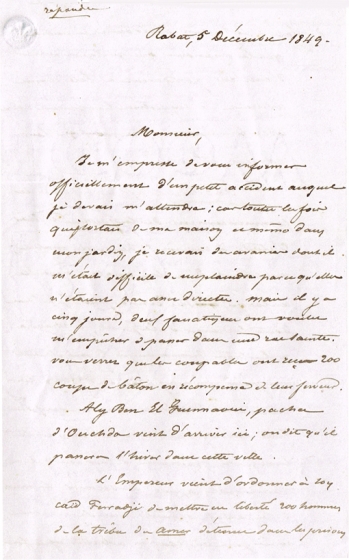 répondu
Rabat, 5 Décembre 1849.
Monsieur,
Je m'empresse de vous informer
officiellement d'un petit accident auquel
je devais m'attendre; car toutes les fois
que je sortais de ma maison et même dans
mon jardin, je recevais des avanies dont il
m'était difficile de me plaindre parce qu'elles
n'étaient pas directes. mais il y a
cinq jours, deux fanatiques ont voulu
m'empêcher de passer dans une rue
vous verrez que les coupables ont reçu 200
coups de bâton en récompense de leur
Aly Ben El pacha
d'Ouchda vient d'arriver ici; on dit qu'il
passera l'hiver dans cette ville.
L'Empereur vient d'ordonner à son
caïd Faradji de mettre en liberté 200 hommes
de la tribu de détenus dans les prisons